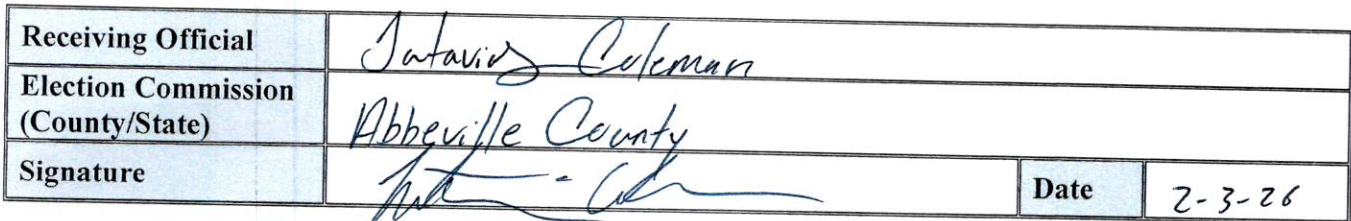 Receiving Official Jatavios Coleman
Election Commission
(County/State) Abbeville County
Signature Date 2-3-26